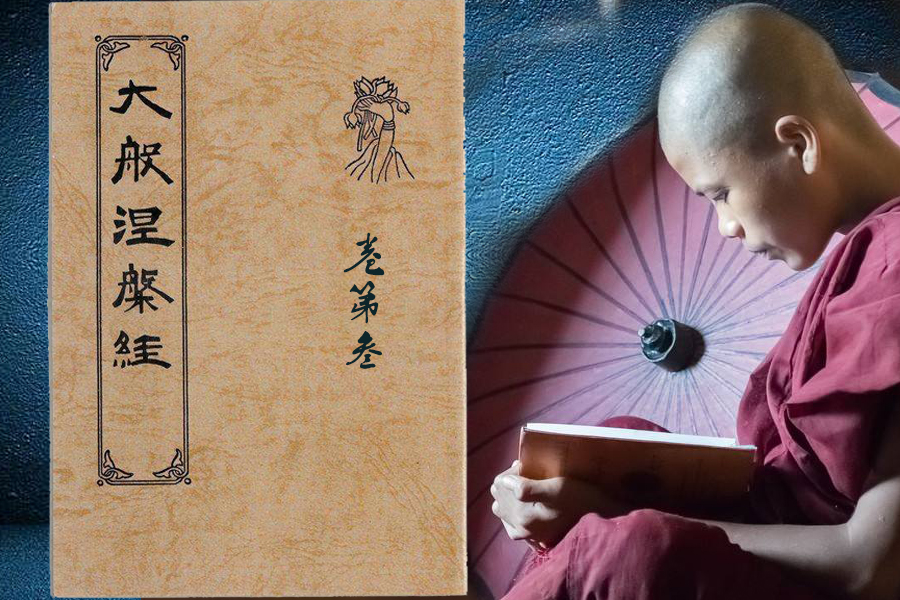 大般涅槃經
卷第叁